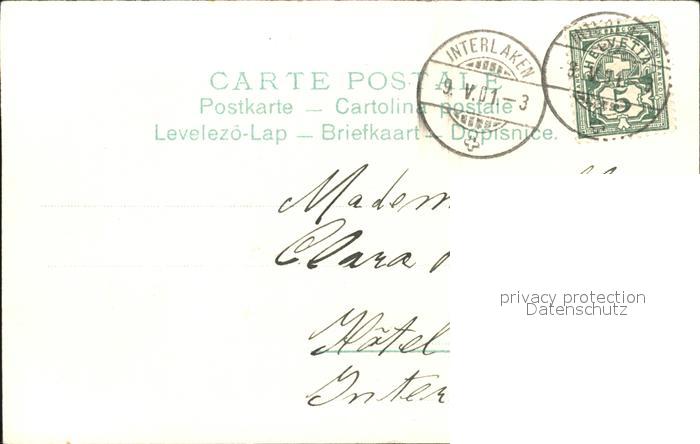 CARTE POSTALE
Postkarte — Cartolina postale
Levelező-Lap — Briefkaart — Dopisnice.
INTERLAKEN
9. V. 01. — 3
HELVETIA
5
Madem
Clara
Hôtel
Inter
privacy protection
Datenschutz